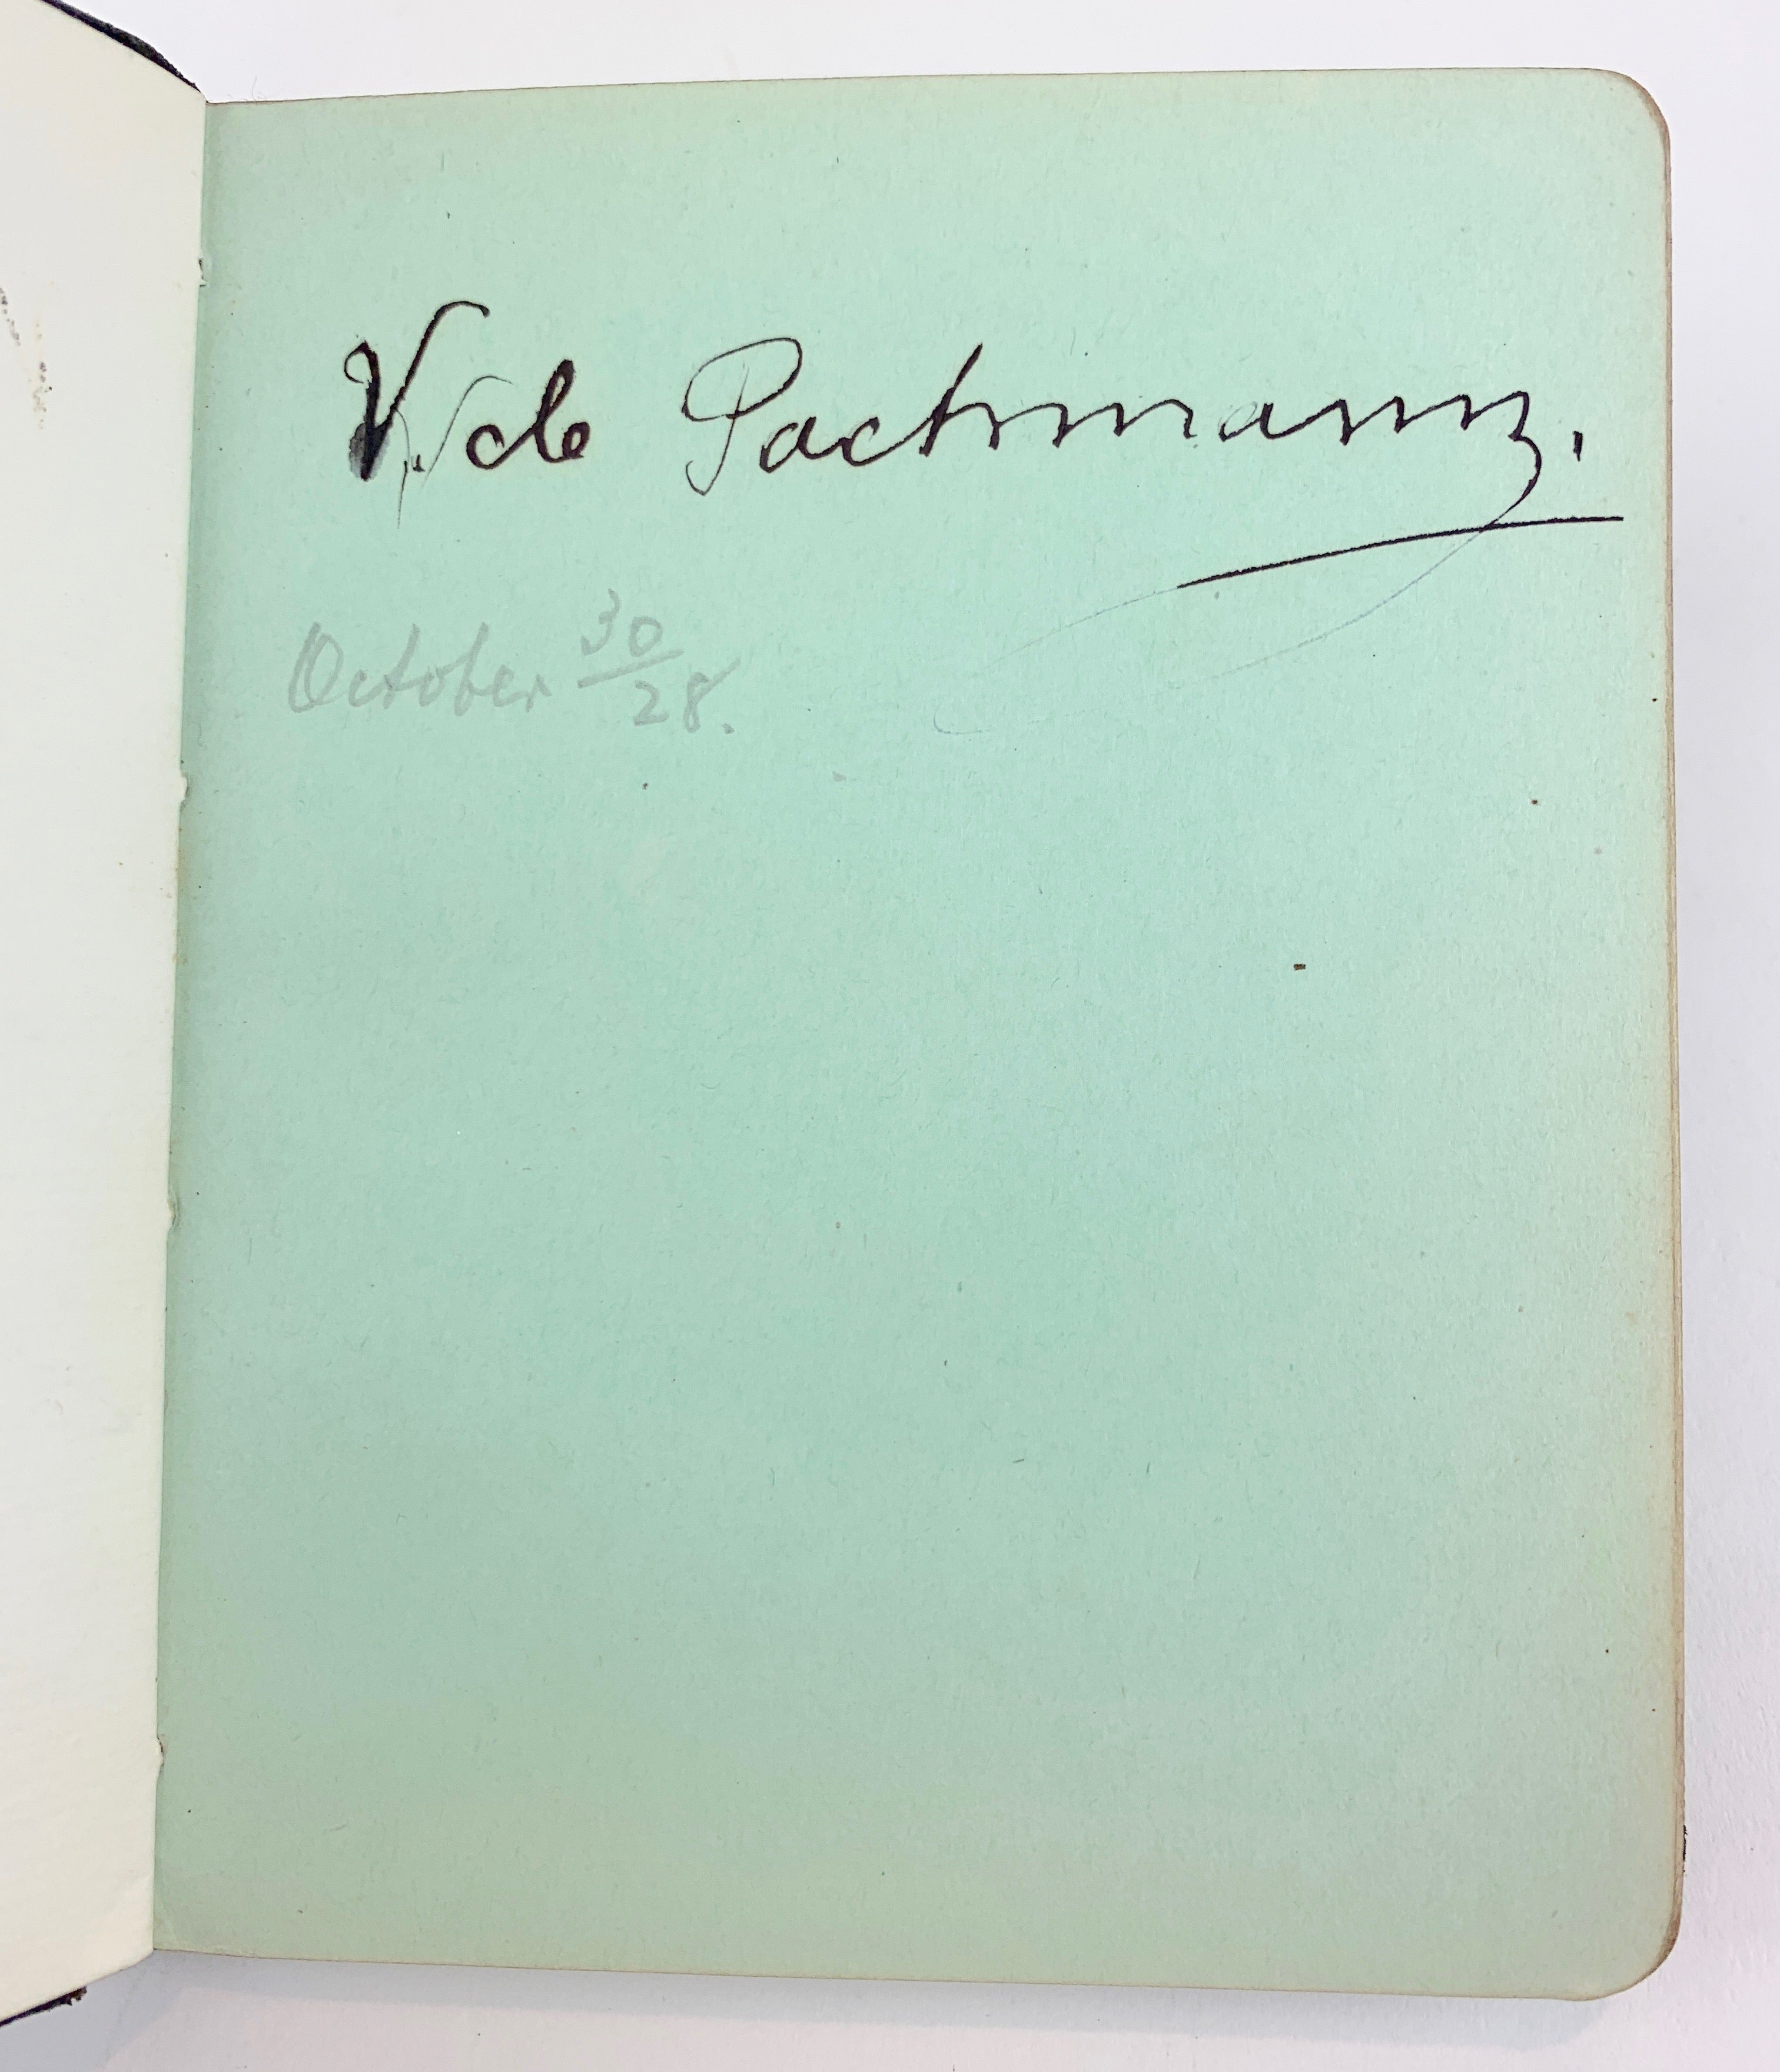 V. de Pachmann.
October 30/28.